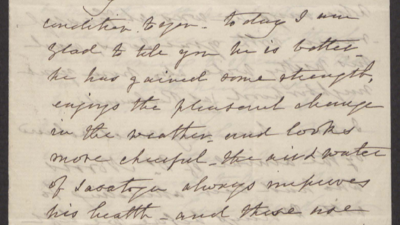 condition to you - today I am
glad to tell you he is better -
he has gained some strength,
enjoys the pleasant change
in the weather - and looks
more cheerful - the air & water
of Saratoga always improves
his health - and there are